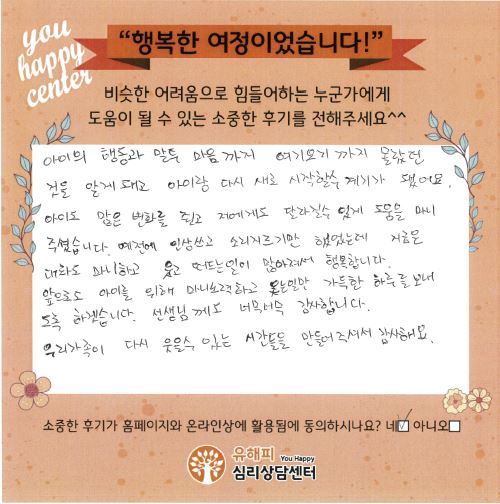 you
happy
center
“행복한 여정이었습니다!”
비슷한 어려움으로 힘들어하는 누군가에게
도움이 될 수 있는 소중한 후기를 전해주세요^^
아이의 행동과 말투 마음까지 여기오기 까지 몰랐던
것을 알게 돼고 아이랑 다시 새로 시작할수 계기가 됐어요.
아이도 많은 변화를 줬고 저에게도 달라질수 있게 도움을 마니
주셨습니다. 예전에 인상쓰고 소리지르기만 했었는데 지금은
대화도 마니하고 웃고 떠드는일이 많아져서 행복합니다.
앞으로도 아이를 위해 마니노력하고 웃는일만 가득한 하루를 보내
도록 하겠습니다. 선생님께도 너무너무 감사합니다.
우리가족이 다시 웃을수 있는 시간들을 만들어주셔서 감사해요.
소중한 후기가 홈페이지와 온라인상에 활용됨에 동의하시나요? 네☑ 아니오☐
유해피 You Happy
심리상담센터